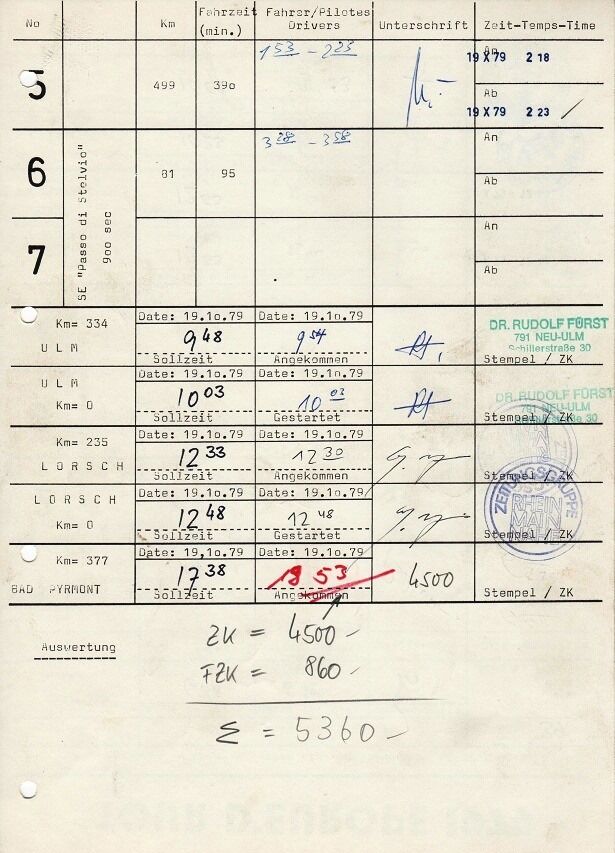 No Km Fahrzeit (min.) Fahrer/Pilotes Drivers Unterschrift Zeit-Temps-Time
5 499 39o 1 53 - 2 23 An 19 X 79 2 18
Ab 19 X 79 2 23
6 81 95 3 28 - 3 58 An
Ab
7 An
Ab
SE "Passo di Stelvio"
9oo sec
Km= 334 Date: 19.1o.79 Date: 19.1o.79
ULM 9 48 9 54
Sollzeit Angekommen Stempel / ZK
DR. RUDOLF FÜRST
791 NEU-ULM
Schillerstraße 30
ULM Date: 19.1o.79 Date: 19.1o.79
Km= o 10 03 10 03
Sollzeit Gestartet Stempel / ZK
DR. RUDOLF FÜRST
791 NEU-ULM
Km= 235 Date: 19.1o.79 Date: 19.1o.79
LORSCH 12 33 12 30
Sollzeit Angekommen Stempel / ZK
LORSCH Date: 19.1o.79 Date: 19.1o.79
Km= o 12 48 12 48
Sollzeit Gestartet Stempel / ZK
ZEITUNGSGRUPPE
RHEIN
MAIN
Km= 377 Date: 19,1o.79 Date: 19.1o.79
BAD PYRMONT 17 38 18 53 4500
Sollzeit Angekommen Stempel / ZK
Auswertung
ZK = 4500 -
FZK = 860 -
Σ = 5360 -